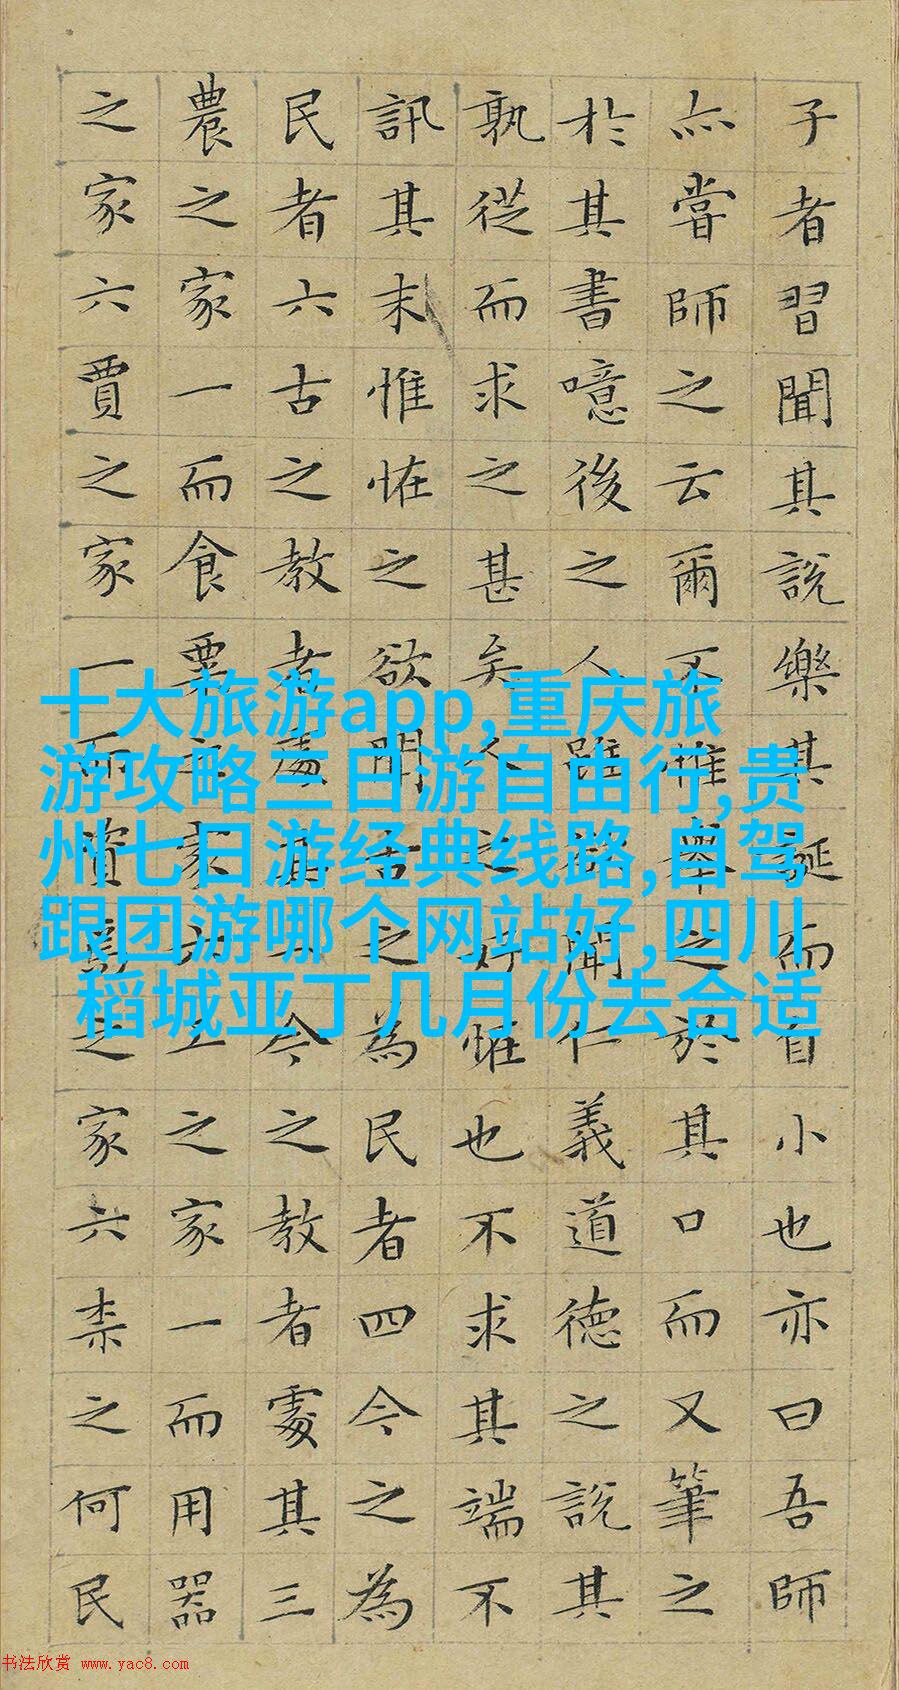 子者習聞其說樂其誕而自小也亦曰吾師
亦嘗師之云爾不惟舉之於其口而又筆之
於其書噫後之人雖欲聞仁義道德之說其
孰從而求之甚矣人之好恠也不求其端不
訊其末惟恠之欲聞古之為民者四今之為
民者六古之教者處其一今之教者處其三
農之家一而食粟之家六工之家一而用器
之家六賈之家一而資焉之家六柰之何民
十大旅游app,重庆旅
游攻略三日游自由行,贵
州七日游经典线路,自驾
跟团游哪个网站好,四川
稻城亚丁几月份去合适
书法欣赏 www.yac8.com